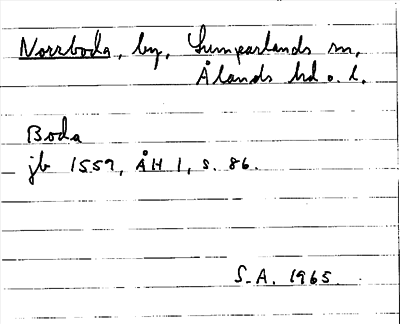 Norrboda, by, Lumparlands sn,
Ålands hd o. l.
Boda
jb 1559, ÅH 1, s. 86.
S.A. 1965.